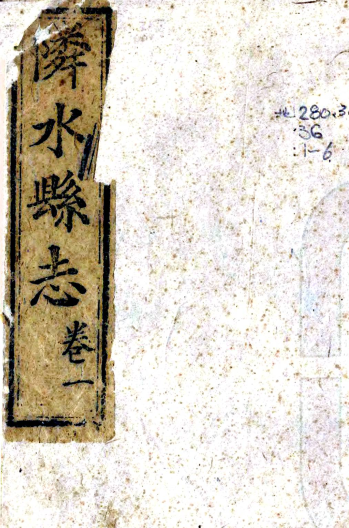 隣水縣志
卷一
地280.3
:36
:1-6